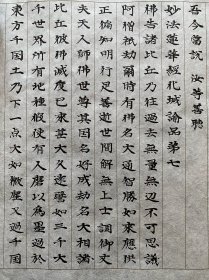 吾今當説 汝等善聽
妙法蓮華經化城諭品第七
佛告諸比丘乃往過去無量無邊不可思議
阿僧祇劫爾時有佛名大通智勝如來應供
正徧知明行足善逝世間解無上士調御丈
夫天人師佛世尊其国名好成劫名大相諸
比丘彼佛滅度已來甚大久遠譬如三千大
千世界所有地種假使有人磨以為墨過於
東方千国土乃下一点大如微塵又過千国